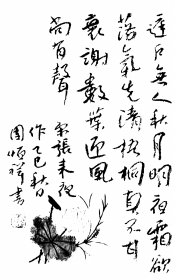 庭户無人秋月明夜霜欲
落氣先清梧桐真不甘
衰謝數葉迎風
尚有聲
宋張耒夜
乙巳秋日
周祥書